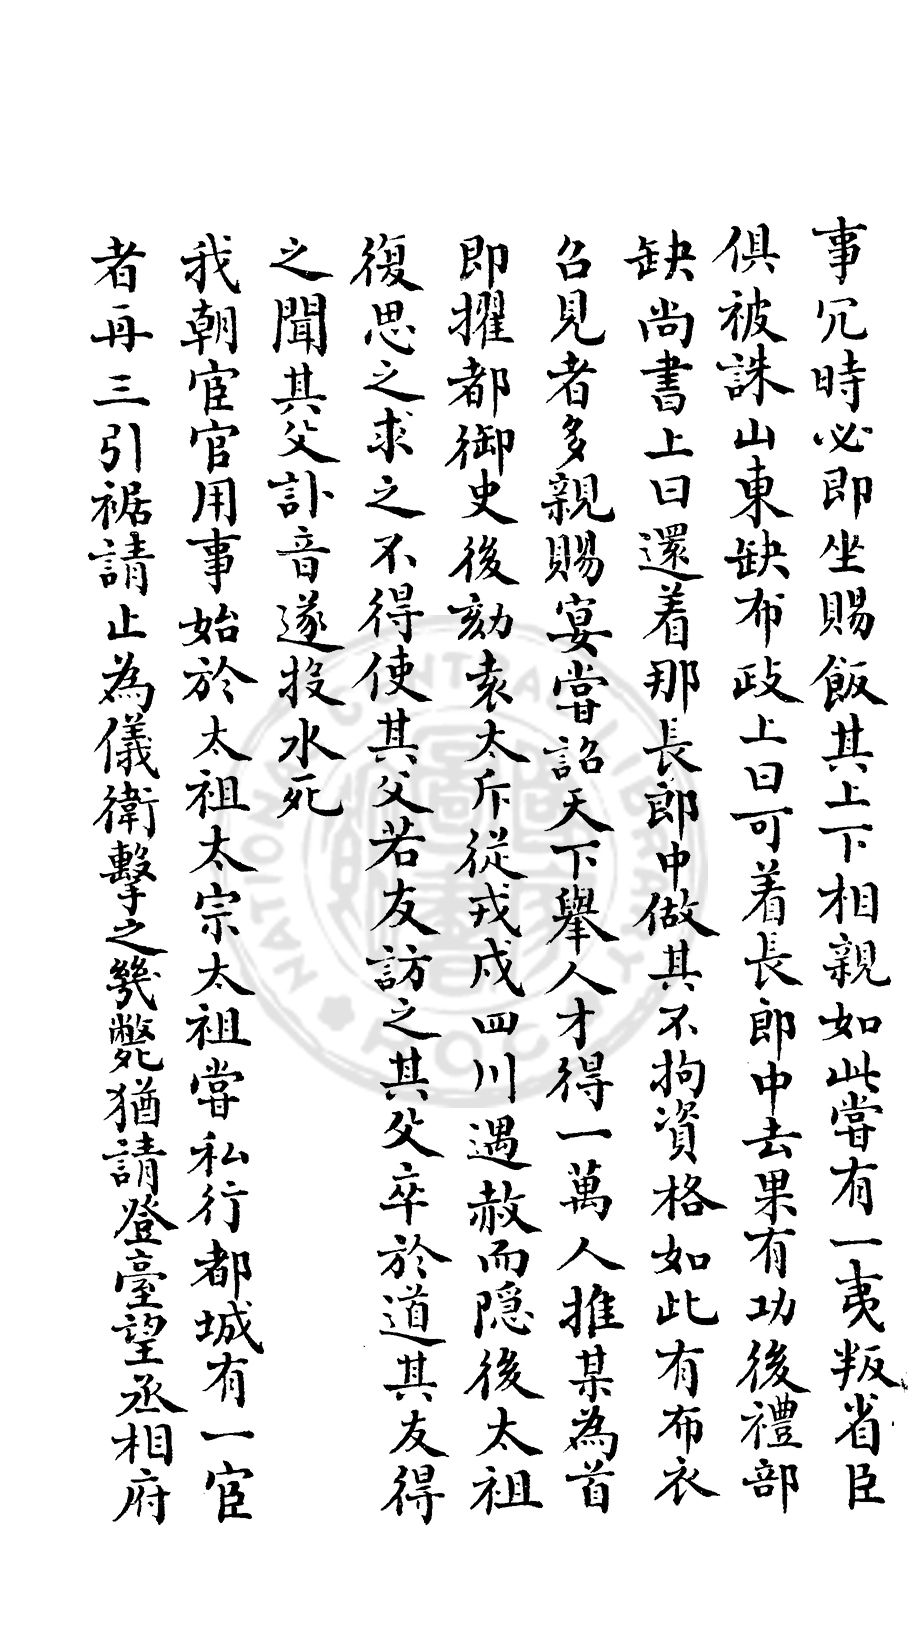 事冗時必即坐賜飯其上下相親如此嘗有一夷叛省臣
俱被誅山東缺布政上曰可着長郎中去果有功後禮部
缺尚書上曰還着那長郎中做其不拘資格如此有布衣
召見者多親賜宴嘗詔天下舉人才得一萬人推某為首
即擢都御史後劾袁太斥從戎戍四川遇赦而隱後太祖
復思之求之不得使其父若友訪之其父卒於道其友得
之聞其父訃音遂投水死
我朝宦官用事始於太祖太宗太祖嘗私行都城有一宦
者再三引裾請止為儀衛擊之幾斃猶請登臺望丞相府
NATIONAL CENTRAL LIBRARY
R.O.C.